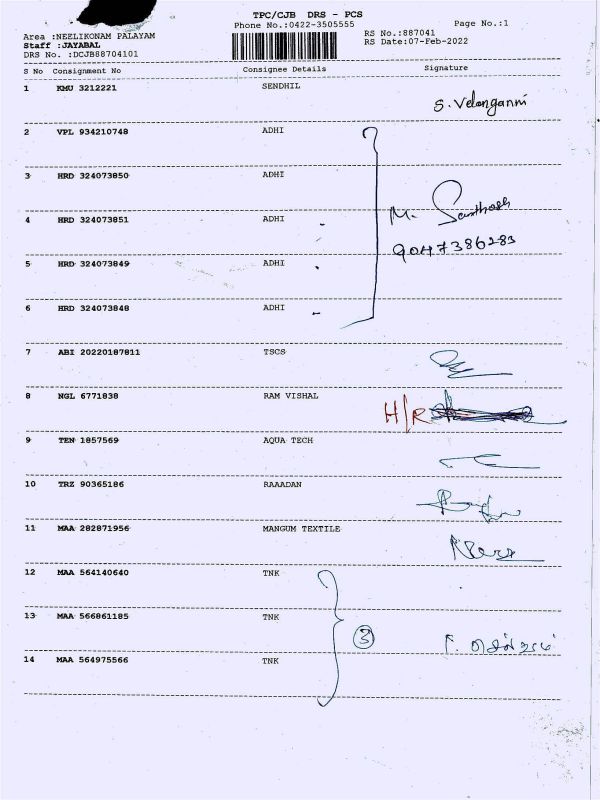 TPC/CJB DRS - PCS
Phone No.:0422-3505555
Page No.:1
Area :NEELIKONAM PALAYAM
Staff :JAYABAL
DRS No. :DCJB88704101
RS No.:887041
RS Date:07-Feb-2022
S No Consignment No Consignee Details Signature
1 KMU 3212221 SENDHIL
S. Velanganni
2 VPL 934210748 ADHI
3 HRD 324073850 ADHI
4 HRD 324073851 ADHI
M. Santhosh
9047386283
5 HRD 324073849 ADHI
6 HRD 324073848 ADHI
7 ABI 20220187811 TSCS
8 NGL 6771838 RAM VISHAL
H/R
9 TEN 1857569 AQUA TECH
10 TRZ 90365186 RAAADAN
11 MAA 282871956 MANGUM TEXTILE
12 MAA 564140640 TNK
13 MAA 566861185 TNK
3
14 MAA 564975566 TNK